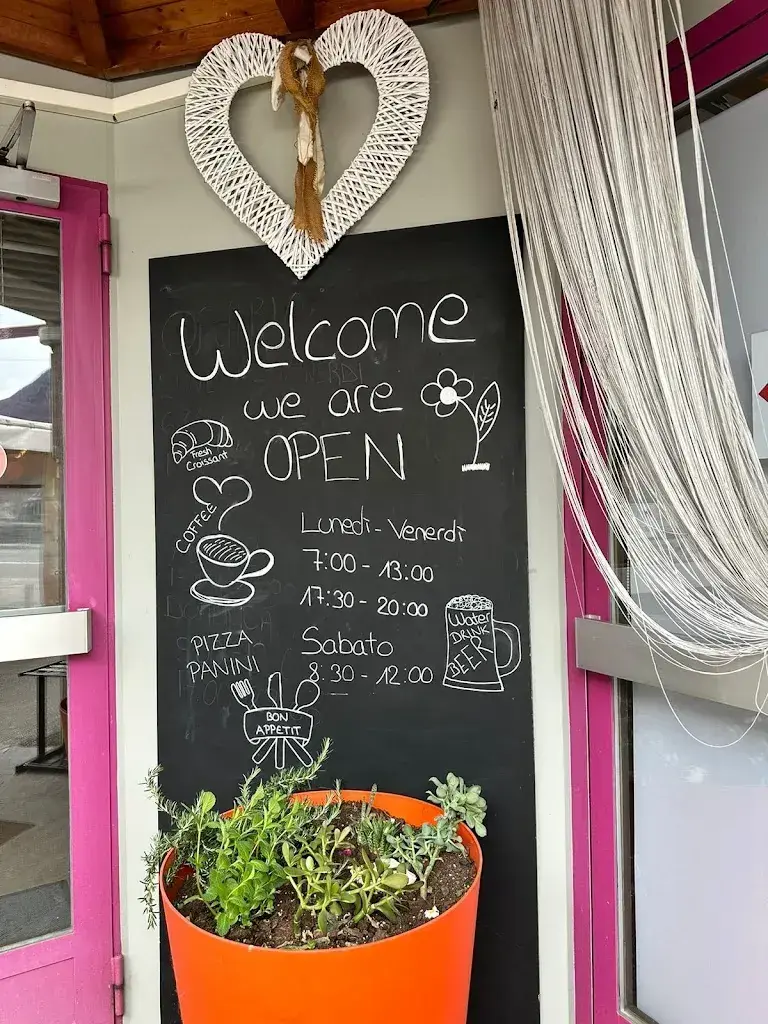 Welcome
we are
OPEN
Fresh
Croissant
COFFEE
Lunedì - Venerdì
7:00 - 13:00
17:30 - 20:00
Sabato
8:30 - 12:00
PIZZA
PANINI
Water
DRINK
BEER
BON
APPETIT